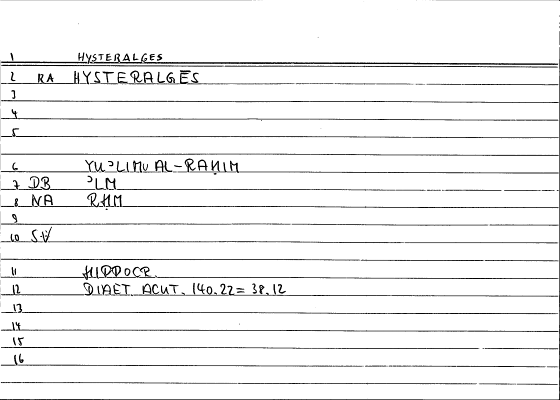 1 HYSTERALGES
2 RA HYSTERALGĒS
3
4
5
6 YUʾLIMU AL-RAḤIM
7 DB ʾLM
8 NA RḤM
9
10 SV
11 HIPPOCR.
12 DIAET. ACUT. 140.22 = 38.12
13
14
15
16